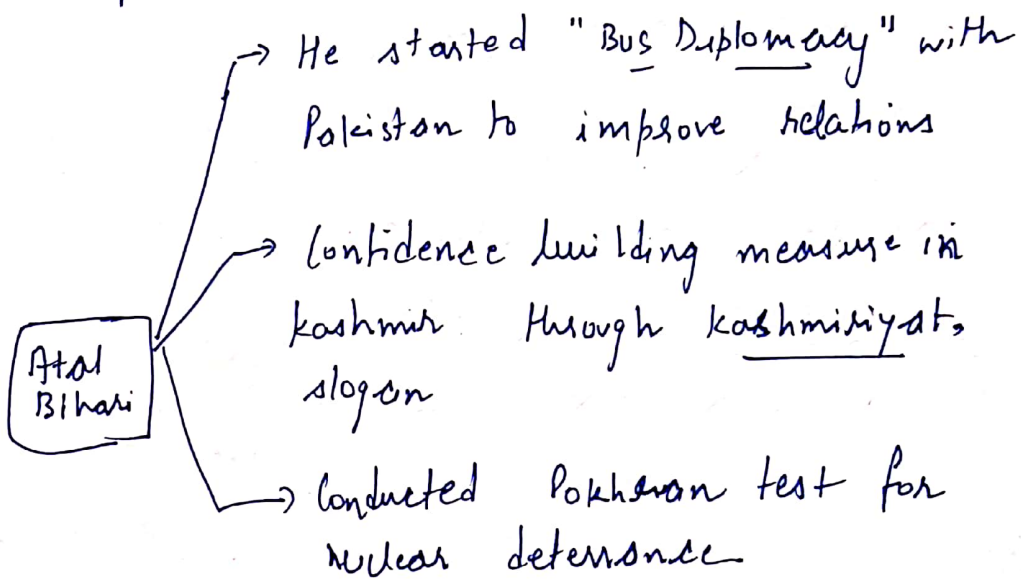 He started "Bus Diplomacy" with
Pakistan to improve relations
Confidence building measure in
kashmir through kashmiriyat,
slogan
Atal
Bihari
Conducted Pokhran test for
nuclear deterrance